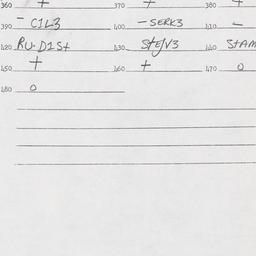 360 + 370 + 380 +
390 - C1L3 400 - SERK3 410 -
420 RU-D1St 430 StE/V3 440 StAM
450 + 460 + 470 0
480 0